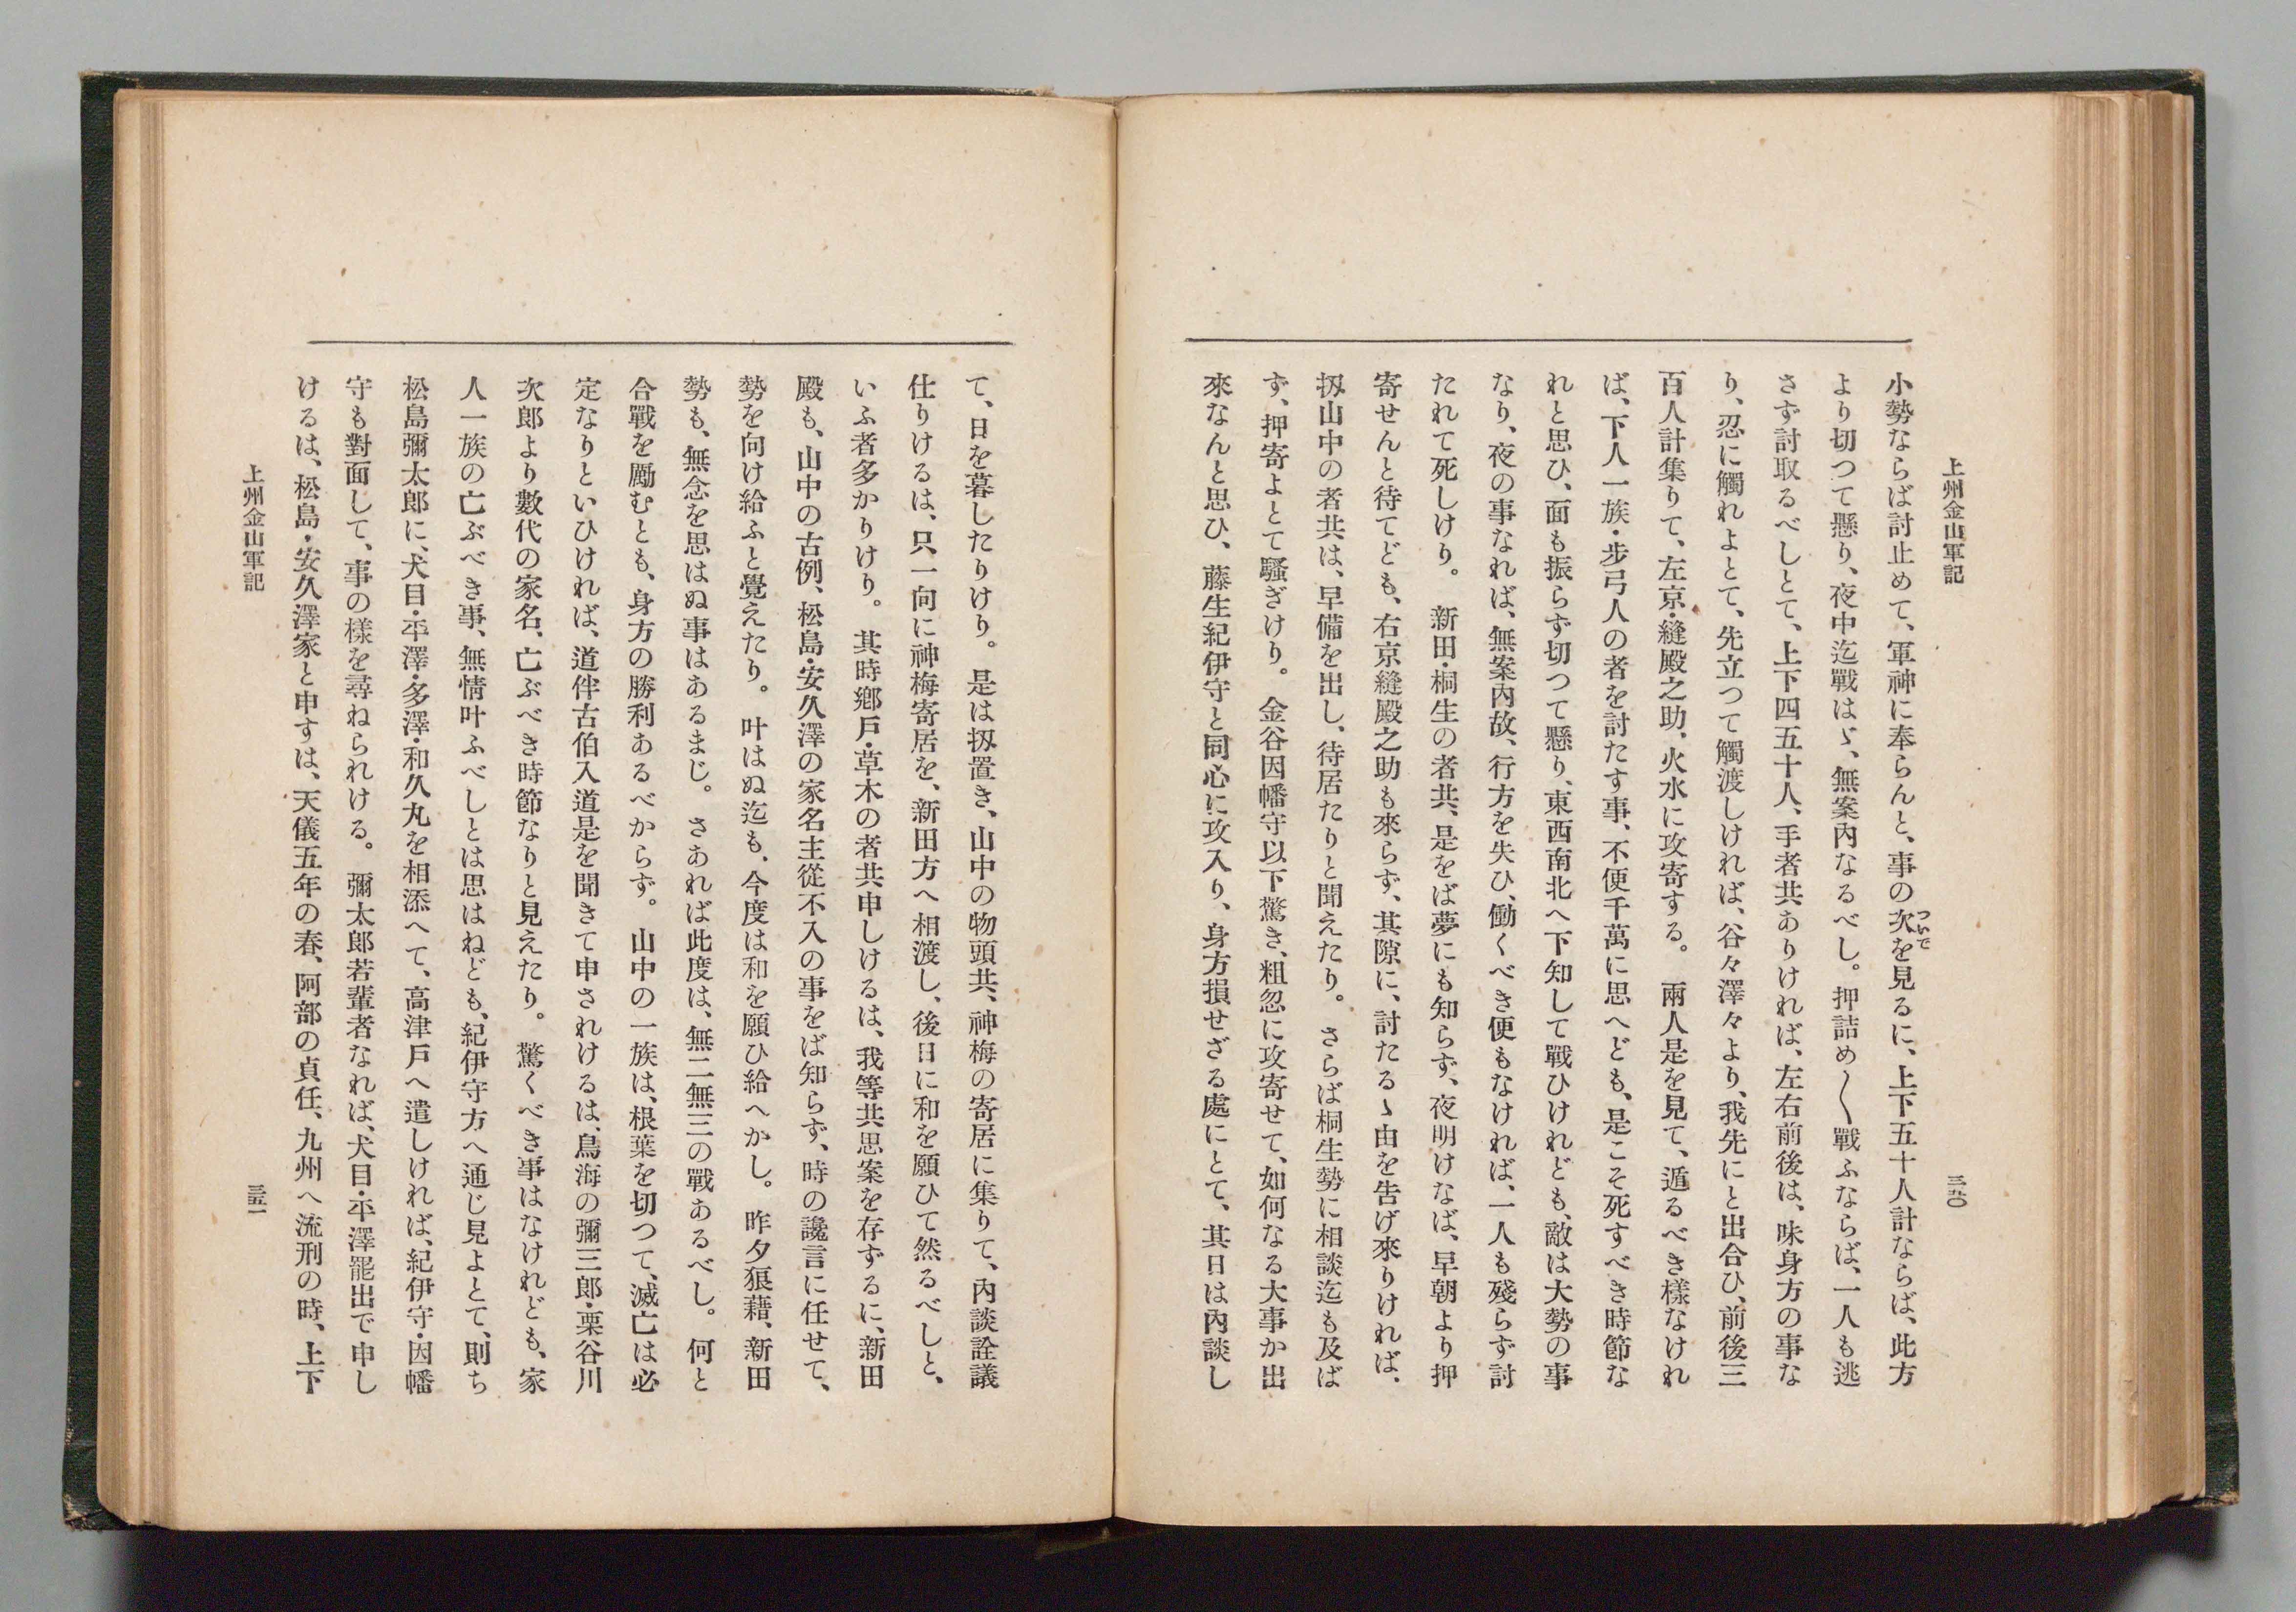 上州金山軍記
三五〇
小勢ならば討止めて、軍神に奉らんと、事の次を見るに、上下五十人計ならば、此方
ついで
より切つて懸り、夜中迄戰はゞ、無案內なるべし。押詰め〱戰ふならば、一人も逃
さず討取るべしとて、上下四五十人、手者共ありければ、左右前後は、味身方の事な
り、忍に觸れよとて、先立つて觸渡しければ、谷々澤々より、我先にと出合ひ、前後三
百人計集りて、左京・縫殿之助、火水に攻寄する。兩人是を見て、遁るべき樣なけれ
ば、下人一族・步弓人の者を討たす事、不便千萬に思へども、是こそ死すべき時節な
れと思ひ、面も振らず切つて懸り、東西南北へ下知して戰ひけれども、敵は大勢の事
なり、夜の事なれば、無案內故、行方を失ひ、働くべき便もなければ、一人も殘らず討
たれて死しけり。新田・桐生の者共、是をば夢にも知らず、夜明けなば、早朝より押
寄せんと待てども、右京縫殿之助も來らず、其隙に、討たるゝ由を告げ來りければ、
扨山中の者共は、早備を出し、待居たりと聞えたり。さらば桐生勢に相談迄も及ば
ず、押寄よとて騷ぎけり。金谷因幡守以下驚き、粗忽に攻寄せて、如何なる大事か出
來なんと思ひ、藤生紀伊守と同心に攻入り、身方損せざる處にとて、其日は內談し
て、日を暮したりけり。是は扨置き、山中の物頭共、神梅の寄居に集りて、內談詮議
仕りけるは、只一向に神梅寄居を、新田方へ相渡し、後日に和を願ひて然るべしと、
いふ者多かりけり。其時鄕戶・草木の者共申しけるは、我等共思案を存ずるに、新田
殿も、山中の古例、松島・安久澤の家名主從不入の事をば知らず、時の讒言に任せて、
勢を向け給ふと覺えたり。叶はぬ迄も、今度は和を願ひ給へかし。昨夕狼藉、新田
勢も、無念を思はぬ事はあるまじ。さあれば此度は、無二無三の戰あるべし。何と
合戰を勵むとも、身方の勝利あるべからず。山中の一族は、根葉を切つて、滅亡は必
定なりといひければ、道伴古伯入道是を聞きて申されけるは、鳥海の彌三郎・栗谷川
次郎より數代の家名、亡ぶべき時節なりと見えたり。驚くべき事はなけれども、家
人一族の亡ぶべき事、無情叶ふべしとは思はねども、紀伊守方へ通じ見よとて、則ち
松島彌太郎に、犬目・平澤・多澤・和久丸を相添へて、高津戶へ遣しければ、紀伊守・因幡
守も對面して、事の樣を尋ねられける。彌太郎若輩者なれば、犬目・平澤罷出で申し
けるは、松島・安久澤家と申すは、天儀五年の春、阿部の貞任、九州へ流刑の時、上下
上州金山軍記
三五一